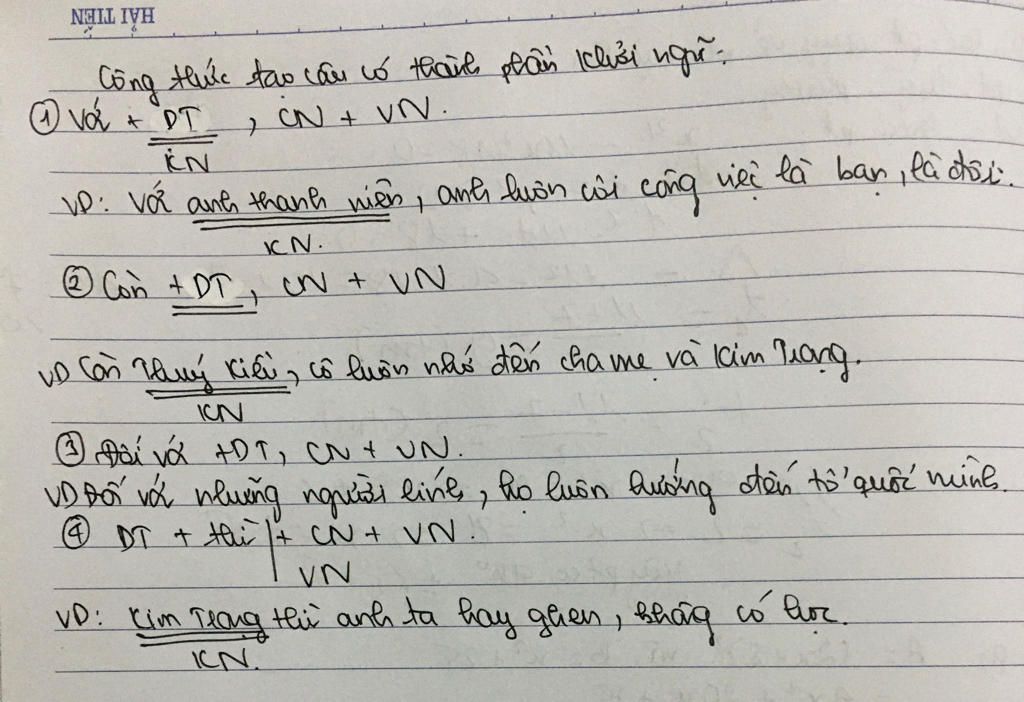 HẢI TIẾN
Công thức tạo câu có thành phần khởi ngữ:
① Với + DT, CN + VN.
KN
VD: Với anh thanh niên, anh luôn coi công việc là bạn, là đời.
KN.
② Còn + DT, CN + VN
VD Còn Thuý Kiều, cô luôn nhớ đến cha mẹ và Kim Trọng.
KN
③ Đối với + DT, CN + VN.
VD Đối với những người lính, họ luôn hướng đến tổ quốc mình.
④ DT + thì + CN + VN.
VN
VD: Kim Trọng thì anh ta hay ghen, có lực.
KN.